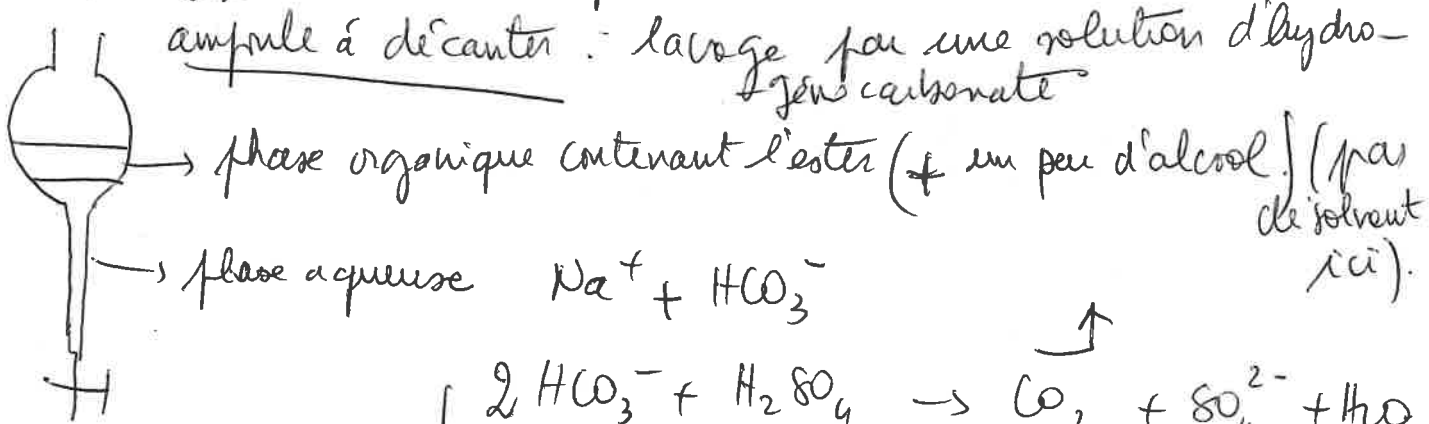 ampoule à décanter : lavage par une solution d'hydro-
génocarbonate
→ phase organique contenant l'ester (+ un peu d'alcool) (pas
de solvant
ici).
→ phase aqueuse Na⁺ + HCO₃⁻
2 HCO₃⁻ + H₂SO₄ → CO₂ + SO₄²⁻ + H₂O